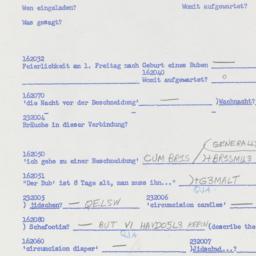 Wen eingeladen? Womit aufgewartet?
Was gesagt?
162032
Feierlichkeit am 1. Freitag nach Geburt eines Buben —
162040
Womit aufgewartet? O
162070
'die Nacht vor der Beschneidung' — )Wachnacht?
232004
Bräuche in dieser Verbindung?
(GENERALL
162050
'ich gehe zu einer Beschneidung' CUM BRISS
162051
'Der Bub' ist 8 Tage alt, man muss ihn..."
QJA
232005 232006
) Jüdschen? — QELSW 'circumcision candles' —
162080
) Schefoetin? — BUT VI (describe the
QJA
162060 232007
'circumcision diaper' — )Jüdschd...?